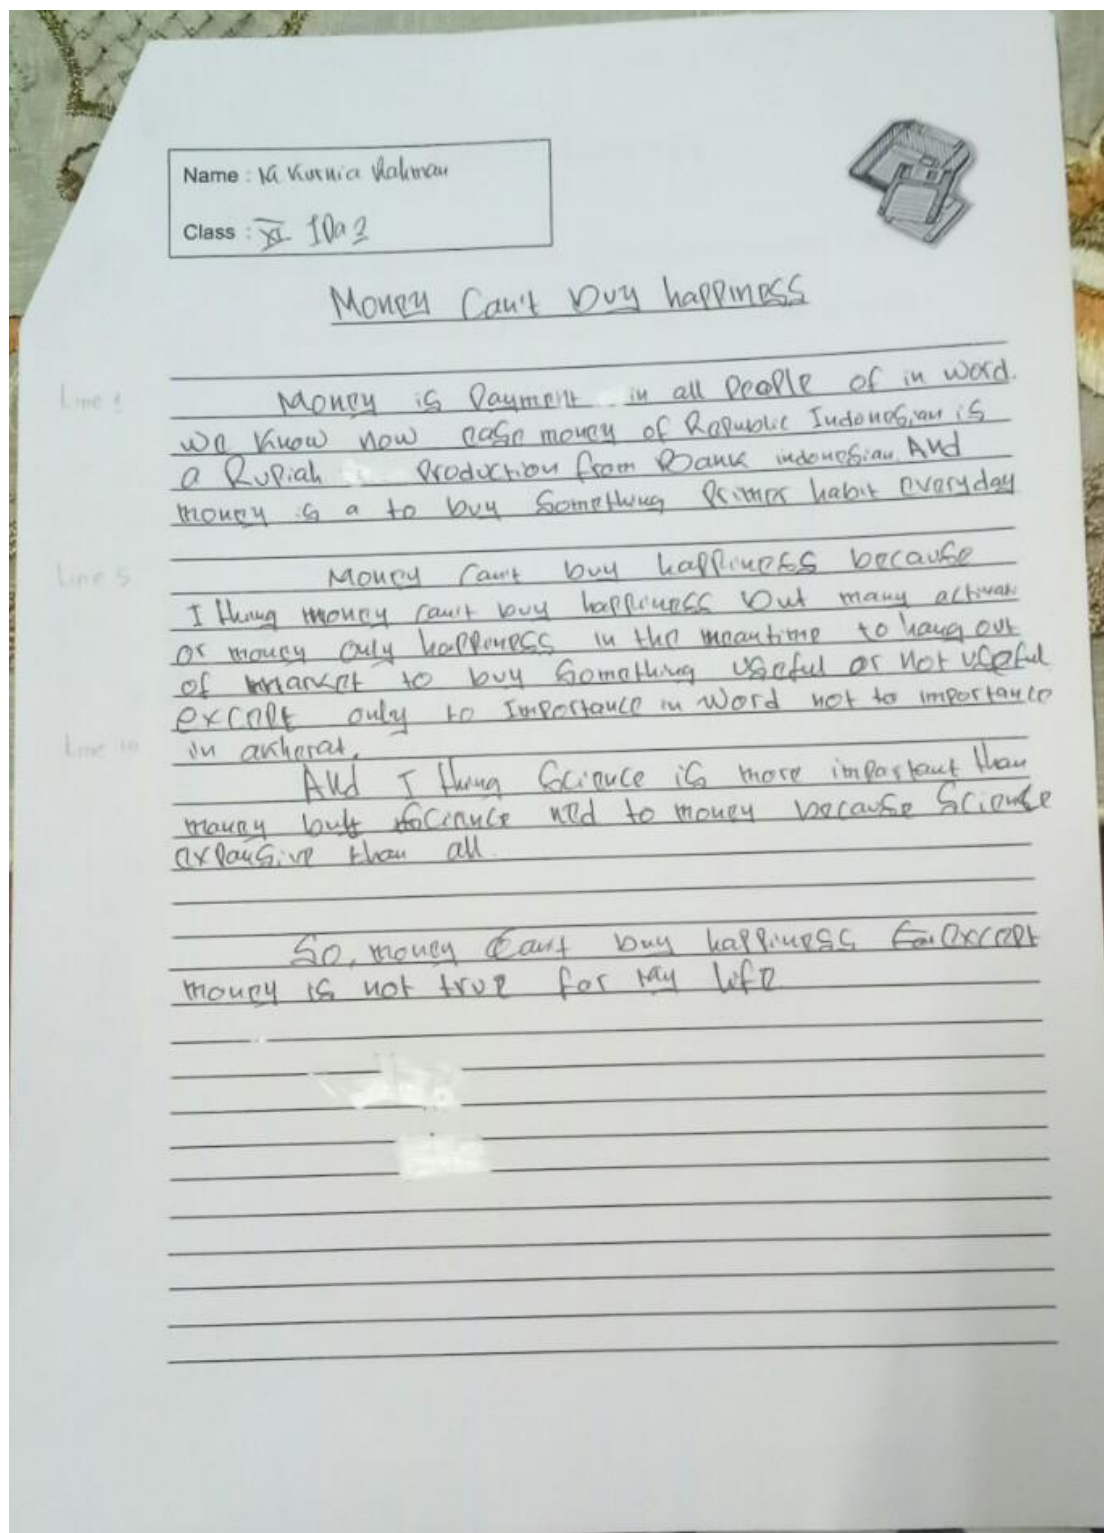 Name : M Kurnia Rahman
Class : XI IPa 2
Money Can't buy happiness
Line 1
Money is Payment in all People of in word.
we know now case money of Republic Indonesian is
a Rupiah Production from Bank indonesian. And
money is a to buy Something Primer habit everyday
Line 5
Money can't buy happiness because
I thing money can't buy happiness but many
or money only happiness in the meantime to hang out
of market to buy Something useful or not useful
except only to Importance in word not to importance
Line 10
in akherat.
And I thing Science is more important than
money but Science ned to money because Science
expansive than all.
So, money Can't buy happiness except
money is not true for my life